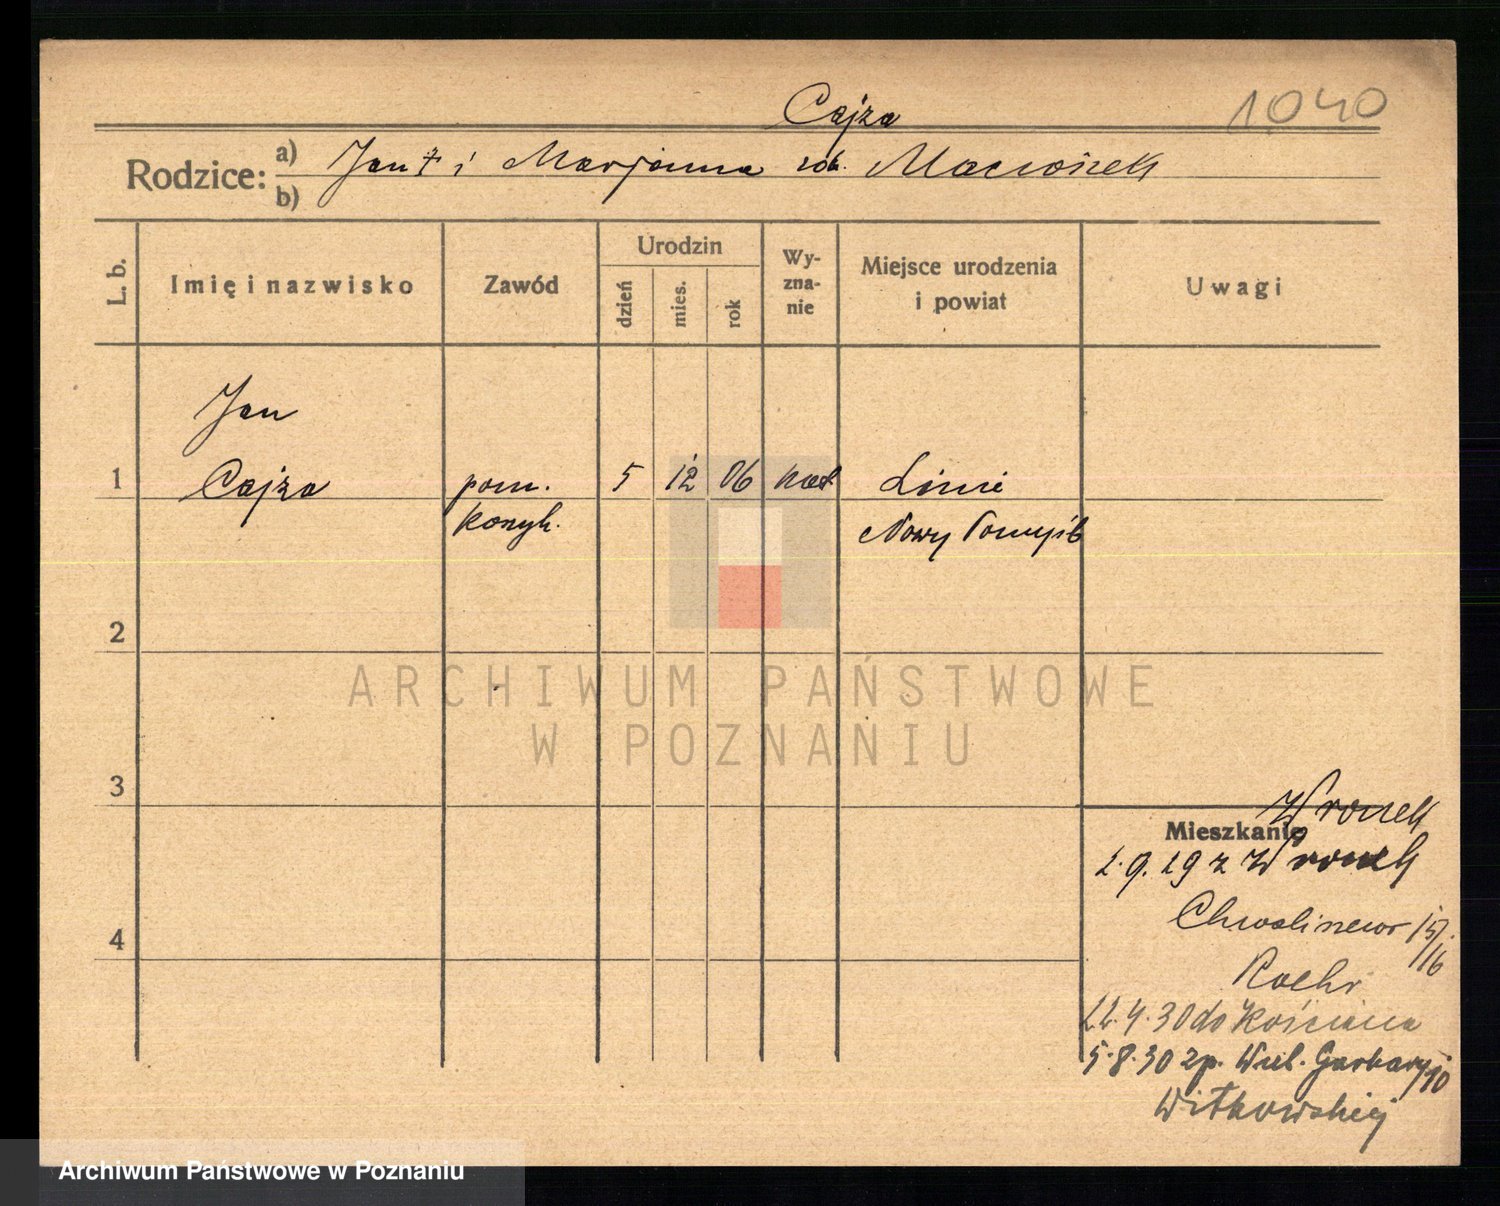 Cajza
1040
Rodzice: a) b) Jan † i Marjanna rob. Maciośzek
L. b. Imię i nazwisko Zawód Urodzin dzień mies. rok Wyznanie Miejsce urodzenia i powiat Uwagi
Jan
1 Cajza pom. 5 12 06 kat Linie
Nowy Tomyśl
2
ARCHIWUM PAŃSTWOWE
W POZNANIU
3
Wronek
Mieszkanie
2.9.29 z Wronek
4
Roehr
22.4.30 do Kościana
5.8.30 zp. Wiel. Garbary 10
Witkowskiej
Archiwum Państwowe w Poznaniu